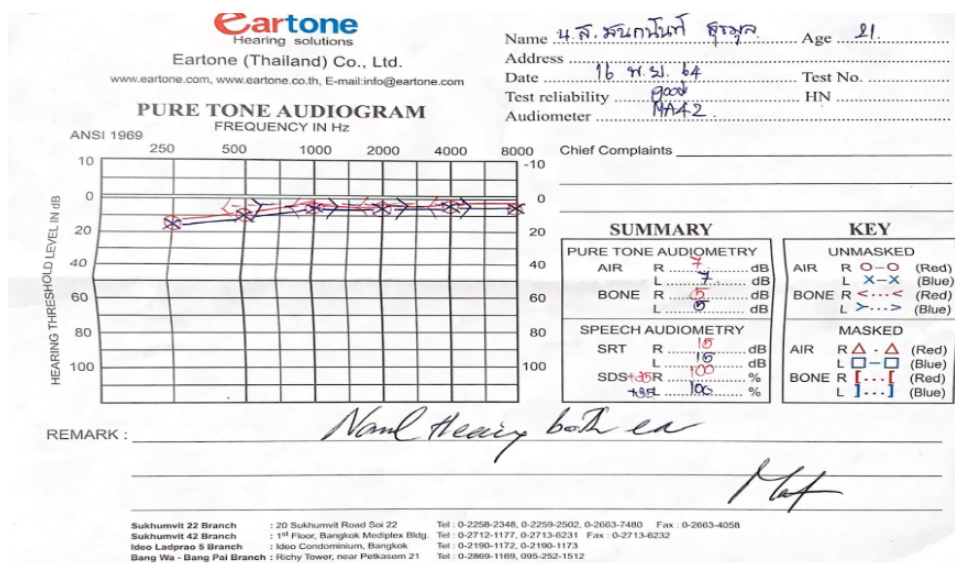 eartone
Hearing solutions
Eartone (Thailand) Co., Ltd.
www.eartone.com, www.eartone.co.th, E-mail:info@eartone.com
Name น.ส. Age 21
Address
Date 16 พ.ย. 64 Test No.
Test reliability good HN
Audiometer MA42
PURE TONE AUDIOGRAM
FREQUENCY IN Hz
ANSI 1969
250 500 1000 2000 4000 8000
Chief Complaints
10 -10
0 0
20 20
40 40
60 60
80 80
100 100
HEARING THRESHOLD LEVEL IN dB
SUMMARY
PURE TONE AUDIOMETRY
AIR R 7 dB
L 7 dB
BONE R 5 dB
L 5 dB
SPEECH AUDIOMETRY
SRT R 15 dB
L 15 dB
SDS +35 R 100 %
+35 L 100 %
KEY
UNMASKED
AIR R O-O (Red)
L X-X (Blue)
BONE R <...< (Red)
L >...> (Blue)
MASKED
AIR R △ . △ (Red)
L □-□ (Blue)
BONE R [...[ (Red)
L ]...] (Blue)
REMARK : both ear
Sukhumvit 22 Branch : 20 Sukhumvit Road Soi 22 Tel : 0-2258-2348, 0-2259-2502, 0-2663-7480 Fax : 0-2663-4058
Sukhumvit 42 Branch : 1st Floor, Bangkok Mediplex Bldg. Tel : 0-2712-1177, 0-2713-6231 Fax : 0-2713-6232
Ideo Ladprao 5 Branch : Ideo Condominium, Bangkok Tel : 0-2190-1172, 0-2190-1173
Bang Wa - Bang Pai Branch : Richy Tower, near Petkasem 21 Tel : 0-2869-1169, 095-252-1512